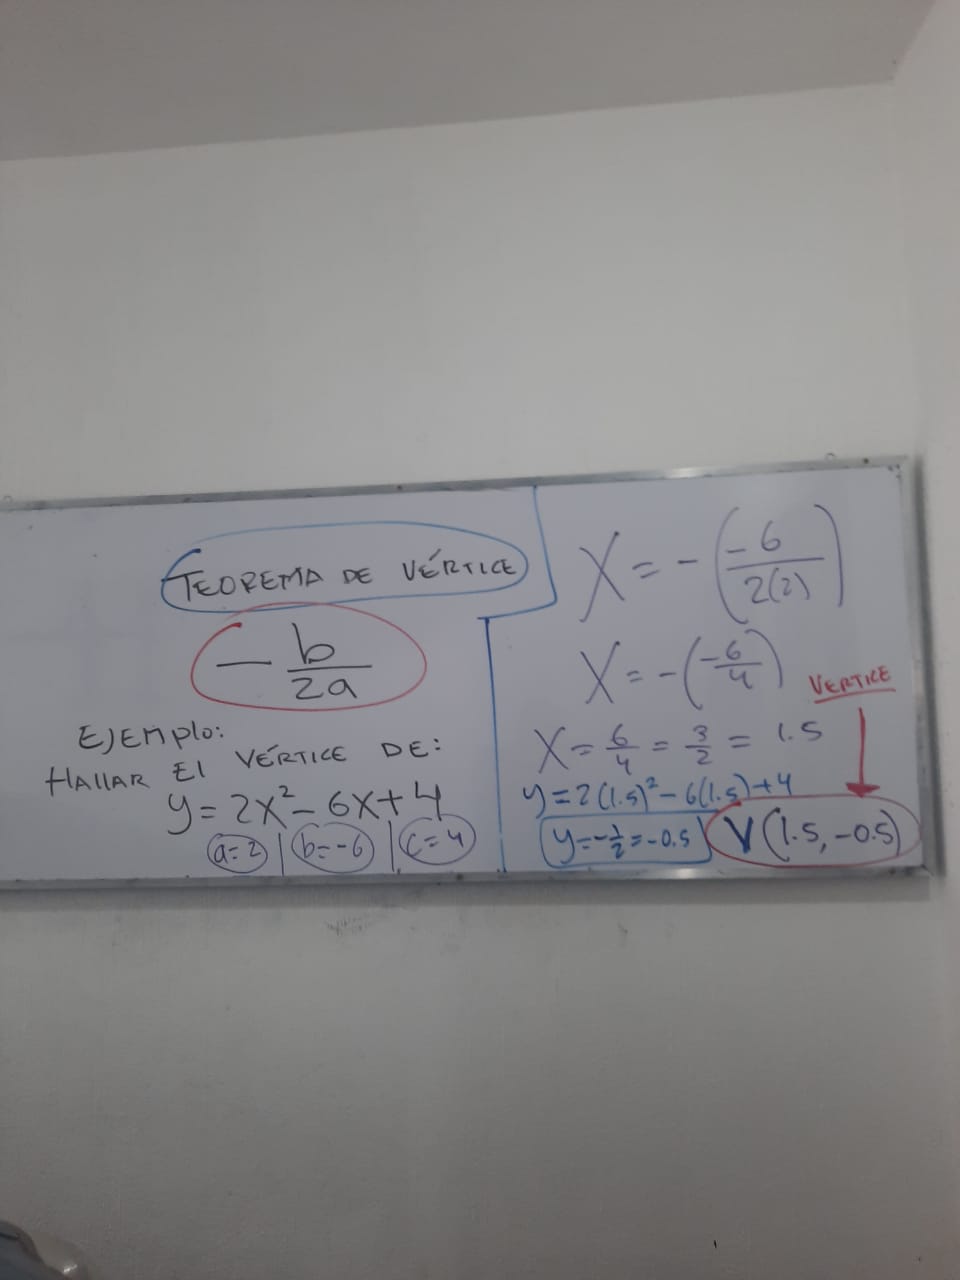 TEOREMA DE VÉRTICE
- b/2a
EJEMPlo:
HALLAR El VÉRTICE DE:
y = 2x² - 6x + 4
a=2 | b=-6 | c=4
X = - (-6/2(2))
X = - (-6/4)
X = 6/4 = 3/2 = 1.5
y = 2(1.5)² - 6(1.5) + 4
y = -1/2 = -0.5
VERTICE
V (1.5, -0.5)